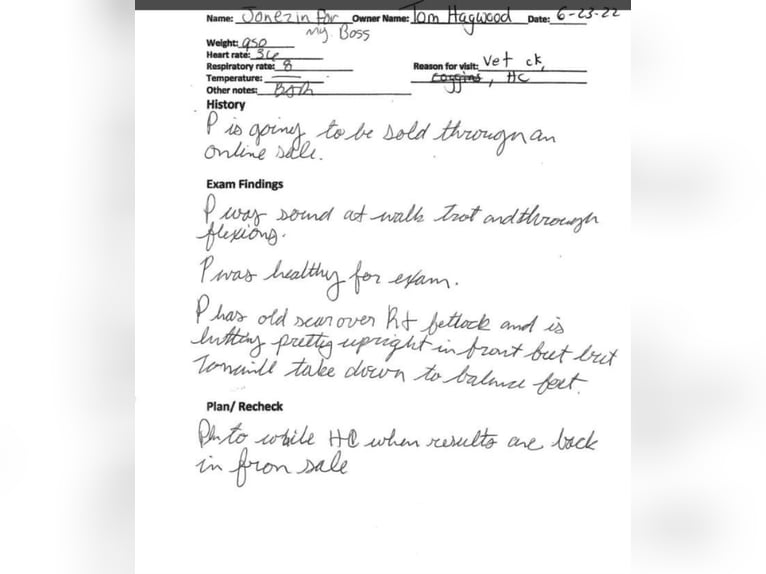 Name: Jonezin for Owner Name: Tom Hagwood Date: 6-23-22
my Boss
Weight: 950
Heart rate: 36
Respiratory rate: 8 Reason for visit: Vet ck,
Temperature: — coggins, HC
Other notes:
History
P is going to be sold through an
online sale.
Exam Findings
P was sound at walk trot and through
flexions.
P was healthy for exam.
P has old scar over Rt fetlock and is
pretty upright in front feet but
Tom will take down to balance feet.
Plan/ Recheck
HC when results are back
in sale